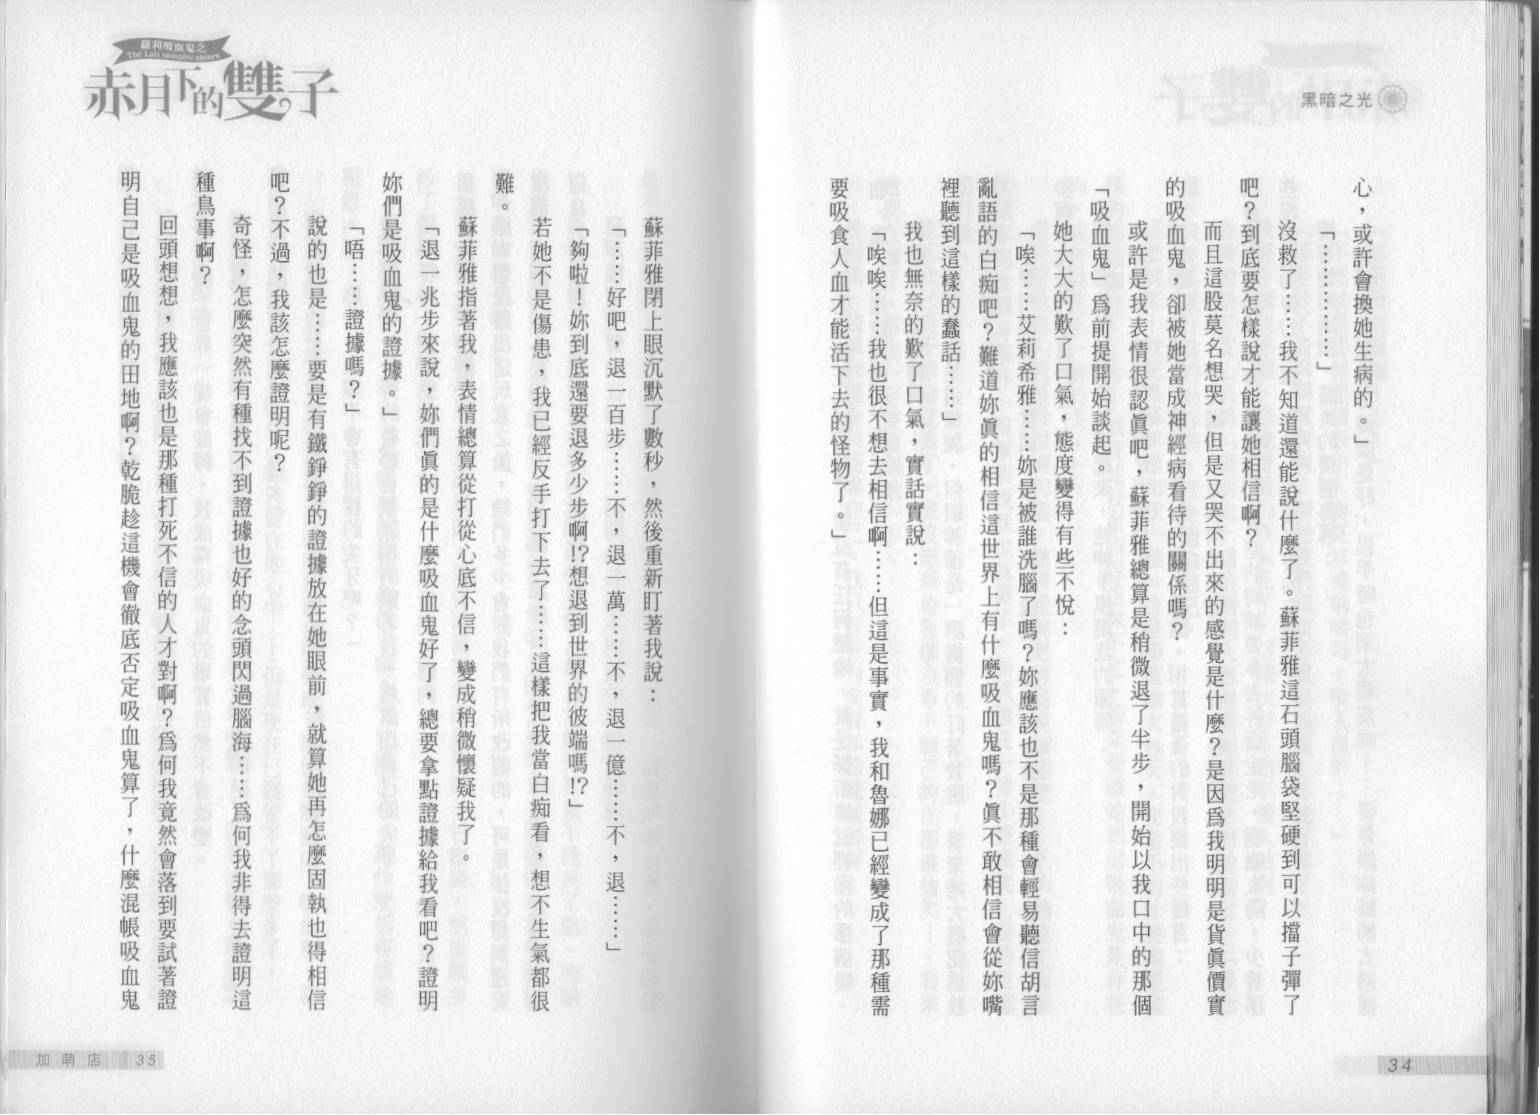 黑暗之光
心，或許會換她生病的。」
「⋯⋯⋯⋯⋯」
沒救了⋯⋯我不知道還能說什麼了。蘇菲雅這石頭腦袋堅硬到可以擋子彈了
吧？到底要怎樣說才能讓她相信啊？
而且這股莫名想哭，但是又哭不出來的感覺是什麼？是因爲我明明是貨眞價實
的吸血鬼，卻被她當成神經病看待的關係嗎？
或許是我表情很認眞吧，蘇菲雅總算是稍微退了半步，開始以我口中的那個
「吸血鬼」爲前提開始談起。
她大大的歎了口氣，態度變得有些不悅：
「唉⋯⋯艾莉希雅⋯⋯妳是被誰洗腦了嗎？妳應該也不是那種會輕易聽信胡言
亂語的白痴吧？難道妳眞的相信這世界上有什麼吸血鬼嗎？眞不敢相信會從妳嘴
裡聽到這樣的蠢話⋯⋯」
我也無奈的歎了口氣，實話實說：
「唉唉⋯⋯我也很不想去相信啊⋯⋯但這是事實，我和魯娜已經變成了那種需
要吸食人血才能活下去的怪物了。」
34
蘿莉吸血鬼之
The Loli vampire sisters
赤月下的雙子
蘇菲雅閉上眼沉默了數秒，然後重新盯著我說：
「⋯⋯好吧，退一百步⋯⋯不，退一萬⋯⋯不，退一億⋯⋯不，退⋯⋯」
「夠啦！妳到底還要退多少步啊!?想退到世界的彼端嗎!?」
若她不是傷患，我已經反手打下去了⋯⋯這樣把我當白痴看，想不生氣都很
難。
蘇菲雅指著我，表情總算從打從心底不信，變成稍微懷疑我了。
「退一兆步來說，妳們眞的是什麼吸血鬼好了，總要拿點證據給我看吧？證明
妳們是吸血鬼的證據。」
「唔⋯⋯證據嗎？」
說的也是⋯⋯要是有鐵錚錚的證據放在她眼前，就算她再怎麼固執也得相信
吧？不過，我該怎麼證明呢？
奇怪，怎麼突然有種找不到證據也好的念頭閃過腦海⋯⋯爲何我非得去證明這
種鳥事啊？
回頭想想，我應該也是那種打死不信的人才對啊？爲何我竟然會落到要試著證
明自己是吸血鬼的田地啊？乾脆趁這機會徹底否定吸血鬼算了，什麼混帳吸血鬼
加萌店 35